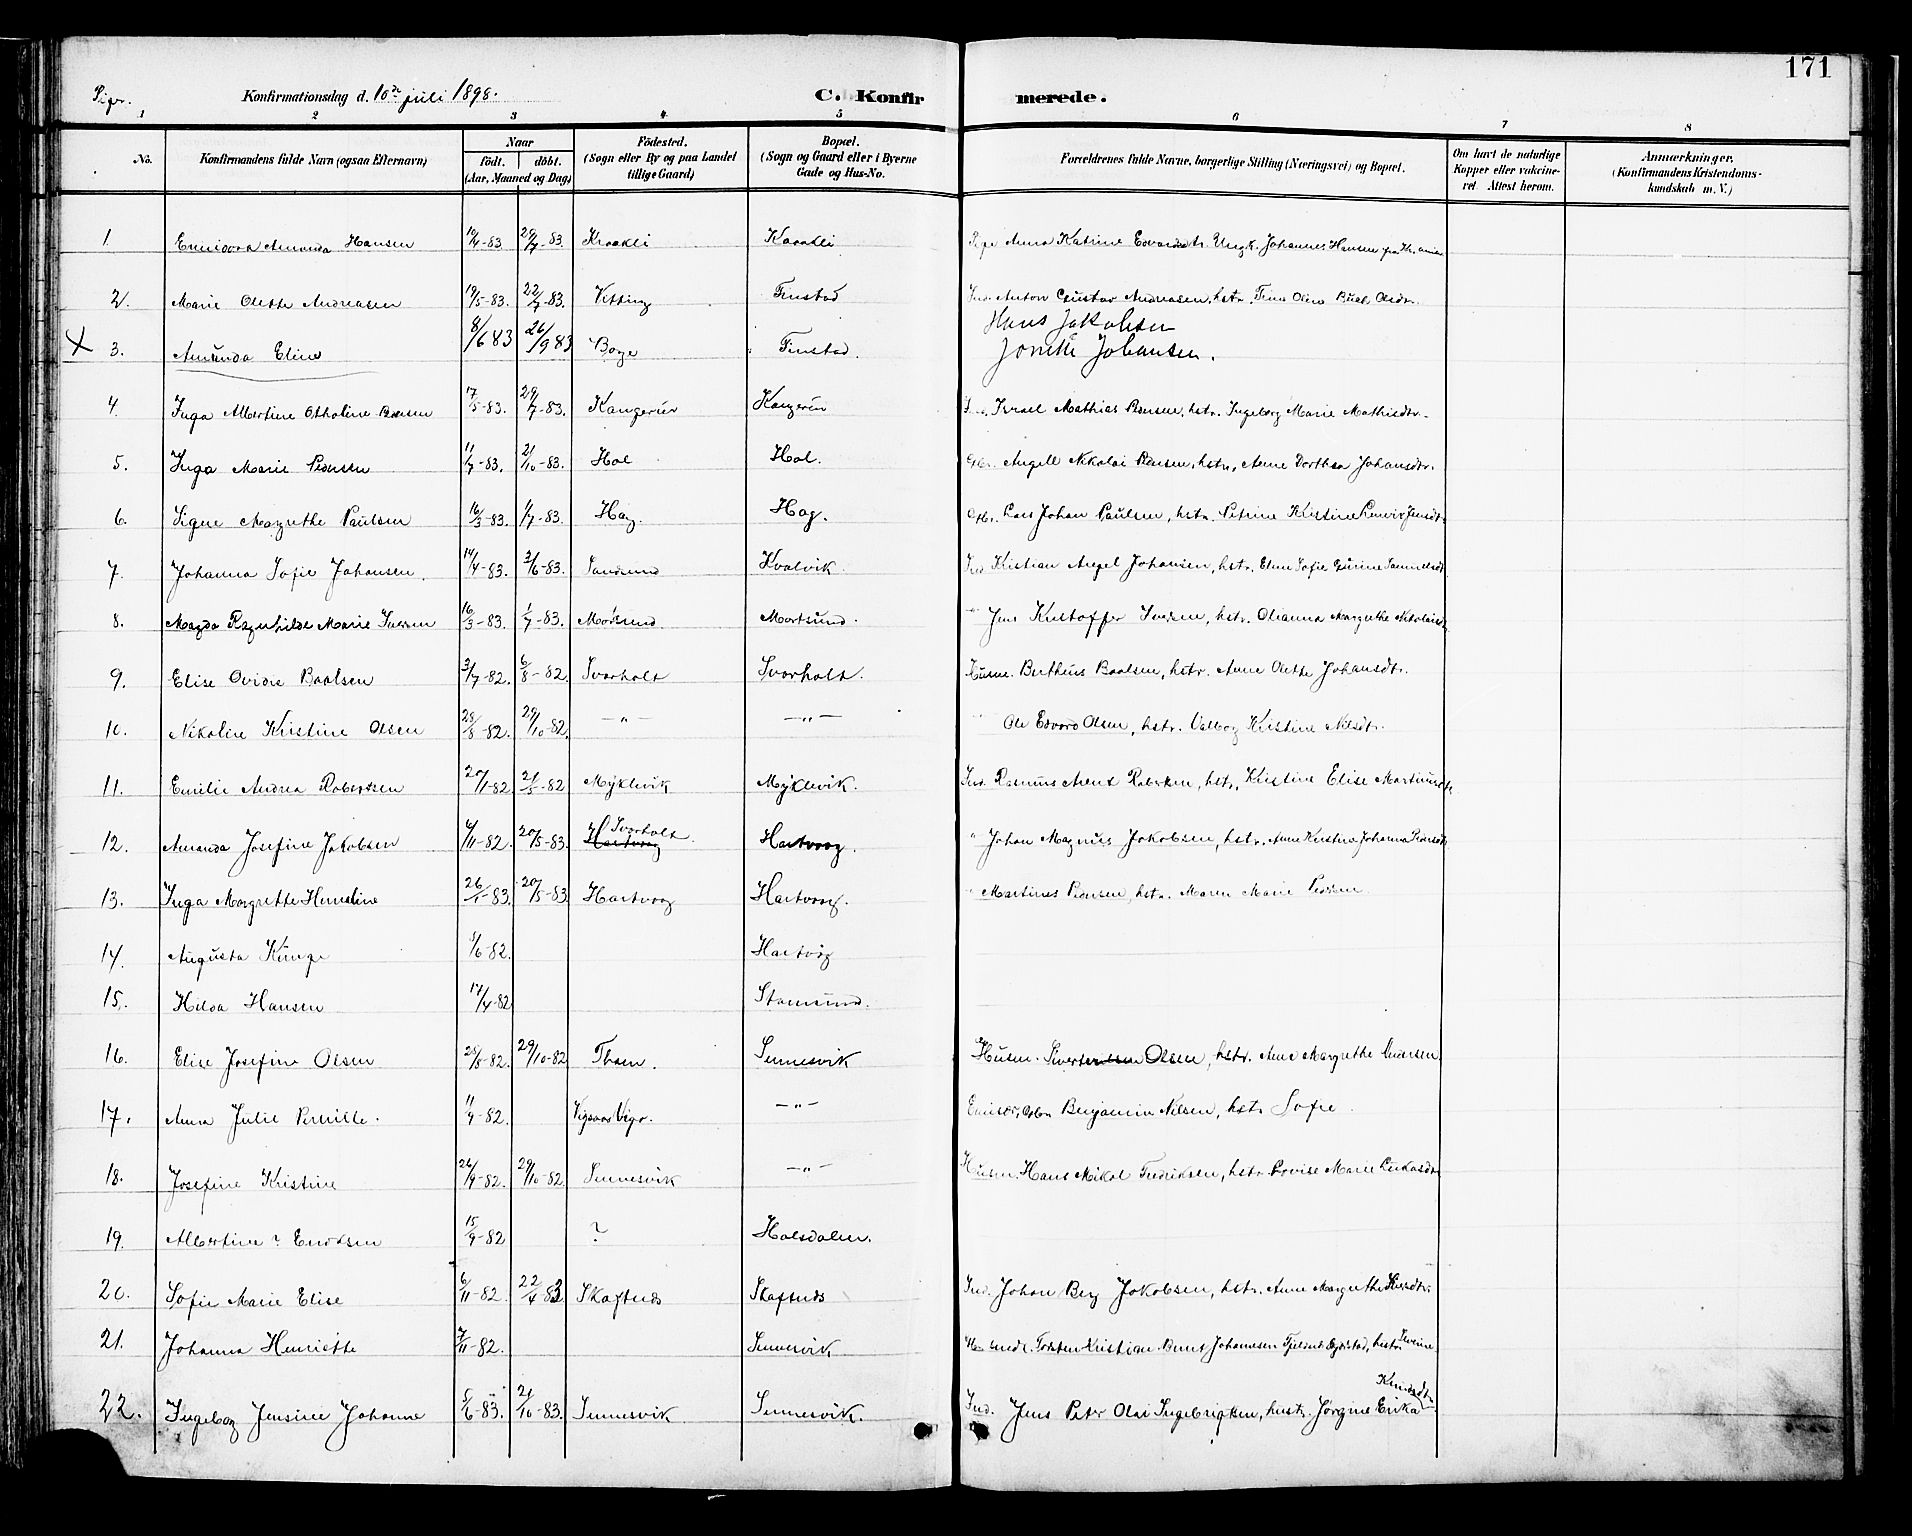 171
Konfirmationsdag d. 10de juli 1898.
C. Konfirmerede.
1 2 3 4 5 6 7 8
No. Konfirmandens fulde Navn (ogsaa Efternavn) Naar født. døbt. (Aar, Maaned og Dag) Fødested. (Sogn eller By og paa Landet tillige Gaard) Bopæl. (Sogn og Gaard eller i Byerne Gade og Hus-No. Forældrenes fulde Navne, borgerlige Stilling (Næringsvei) og Bopæl. Om havt de naturlige Kopper eller vakcineret. Attest herom. Anmærkninger. (Konfirmandens Kristendomskundskab m.V.)
1. Amanda Hansen 10/4-83. 29/7-83. Anna Katrine Ungk. Johannes Hansen
2. Marie Olette Andreasen 19/5-83. 22/7-83. Finstad Ind. Anton Gustav Andreasen, hstr.
Hans Jakobsen
X 3. Amanda Eline 8/6 83 26/9 83 Borge Finstad. Johansen.
4. Inga Albertine Othaline 17/5-83. 29/7-83. Kangerur Kangerur Israel Mathias hstr. Ingeborg Marie Mathisdtr.
5. Inga Marie Pedersen 11/7-83. 21/10-83. Hol Hol. Angell Nikolai hstr. Anne Dorthea Johansdtr.
6. Signe Magrethe Paulsen 16/3-83. 1/7-83. Hag. Hag. Lars Johan Paulsen, hstr. Petrine Kristine Jensdtr.
7. Johanna Sofie Johansen. 14/4-83. 3/6-83. Sandsund Kvalvik. Ind. Kristian Angel Johansen, hstr. Sofie
8. Magda Ragnhilde Marie Iversen 16/3-83. 1/7-83. Mortsund. Jens Kristoffer Iversen, hstr. Olianna Margrethe
9. Elise Ovidie Baalsen 3/7-82. 6/8-82. Svarholt Svarholt. Husm. Bertheus Baalsen, hstr. Anne Olette Johansdtr.
10. Nikoline Kristine Olsen 28/8-82. 29/10-82. —"— —"— " Ole Edvard Olsen, hstr. Valborg Kristine Nilsdtr.
11. Emilie Andrea Robertsen 20/1-82. 21/5-82 Myklevik Myklevik. Ind. Rasmus Arent Robertsen, hstr. Kristine Elise
12. Amanda Josefine Jakobsen 4/11-82. 20/5-83. Svarholt Hartvaag Hartvaag. " Johan Magnus Jakobsen, hstr. Anne Kristine Johanna
13. Inga Margrethe 26/1-83. 20/5-83 Hartvaag Hartvaag. " Martines Pedersen, hstr. Maren Marie
14. Augusta 5/6-82. Hartvåg
15. Hilda Hansen 17/4-82 Stamsund.
16. Elise Josefine Olsen 25/8-82. 29/10-82 Sennesvik Husm. Olsen, hstr. Anne Margrethe
17. Anna Julie Pernille. 11/9-82. —"— Benjamin Nilsen, hstr Sofie.
18. Josefine Kristine 26/9-82. 29/10-82. Sennesvik —"— Husm. Hans Mikal Fredriksen, hstr. Lovise Marie Lukasdtr
19. Albertine ? 15/9-82 ? Holsdalen.
20. Sofie Marie Elise 6/11-82. 22/4-83 Skaftnes Skaftnes Ind. Johan Berg Jakobsen, hstr. Anne Margrethe
21. Johanna Henriette 7/11-82. Sennesvik Kristian Johannesen
22. Ingeborg Jensine Johanne 5/6-83. 21/10-83. Sennesvik Sennesvik. Ind. Jens Peter Olai Ingebrigtsen, hustr. Jørgine Erika Knudsdtr.